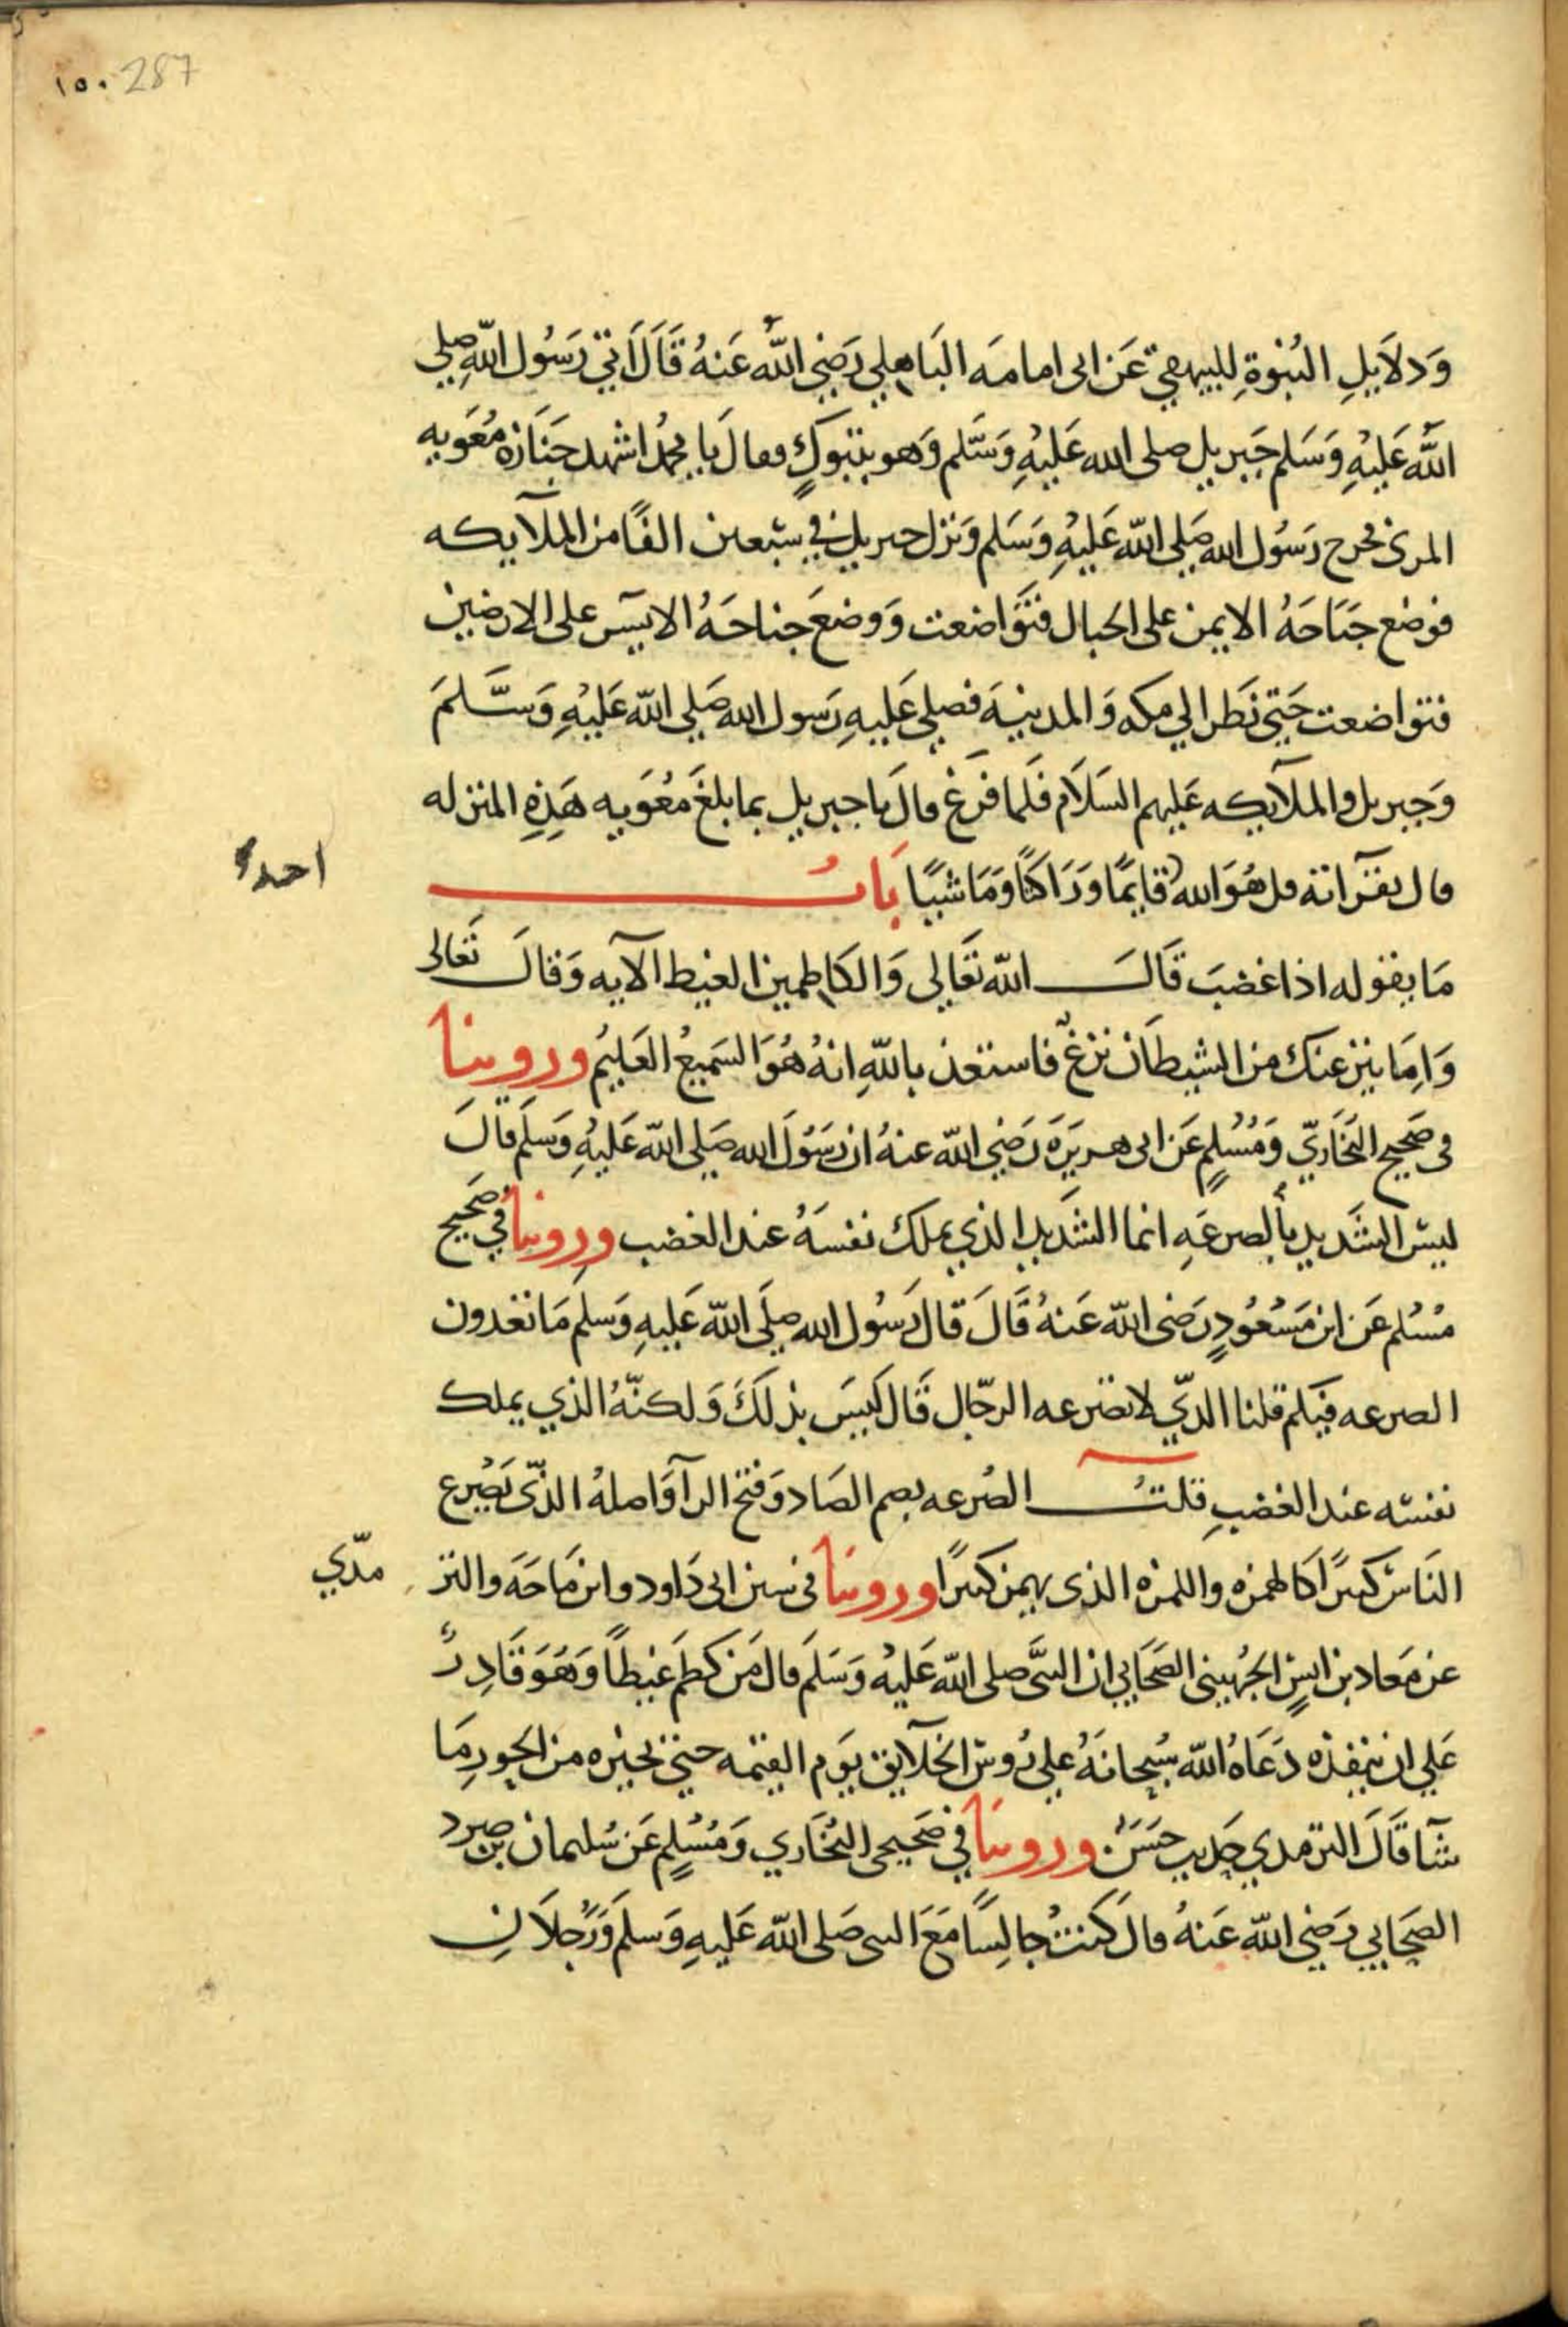 ١٥٠ 287
وَدلاَيلِ النُبوةِ للبيهقي عَن ابى امامه البَاهِلي رَضِي اللّٰه عَنهُ قَالَ اَتي رَسُول اللّٰه صلي
اللّٰه عَليْهِ وَسَلم جَبريل صلى الله عَليْهِ وَسَلم وَهو بتبوكٍ فقال يَا محمدُ اشهد جَنَازه مُعَويه
المزنى فخرج رَسُول الله صَلى اللّٰه عَليْهِ وَسَلم وَنزل جبريل في سَبعين الفًا من الملآيكه
فوضع جَنَاحَهُ الايمن على الجبال فتَوَاضعت وَوضعَ جناحَهُ الايسَر على الارضين
فتواضعت حَتي نَظر الي مكه وَالمدينَه فصلي عَليهِ رَسول الله صَلي اللّٰه عَليْهِ وَسَّلمَ
وَجبريل والملآيكه عَليهم السَلاَم فَلما فَرغ قالَ يا جبريل بما بلغَ مُعَويه هَذِهِ المنزله
قال بقرآنه قل هُوَ الله قايمًا وَرَاكبًا وَمَاشيًا بَابُ
احدٌ
مَا يقوله اذا غضبَ قَالَ اللّٰه تعَالي وَالكاظمين الغيظ الآيه وَقالَ تَعَالى
وَاِمَا ينزغنك من الشيطَان نزغٌ فاستعذ باللّٰهِ انهُ هُوَ السَميعُ العَليمُ وروينا
فى صَحيح البُخَاريّ وَمُسْلمٍ عَن ابى هريَرَه رَضي اللّٰه عنهُ ان رَسُولَ الله صَلي اللّٰه عَليْهِ وَسَلم قالَ
ليسَ الشَديد بالصرعَهِ انما الشَديد الذي يملك نفسَهُ عند الغضب وروينا في صَحيح
مُسْلم عَن ابن مَسْعُودٍ رَضى اللّٰه عَنهُ قَالَ قَال رَسُول الله صلَى اللّٰه عَليهِ وَسلم مَا تعدون
الصرعه فيكم قلنا الذّي لا تصَرعه الرجّال قَال لَيسَ بذلكَ وَلكنّهُ الذي يملك
نفسَه عند الغضبِ قلتُ الصُرعه بضم الصَاد وَفتح الرآ وَاصلهُ الذّى يَصْرع
النَاسَ كثيرًا كالهمزه واللمزه الذى يهمز كثيرًا وروينا فى سنن ابى دَاود وابن مَاجَه والتر
مذّي
عن مَعاد بن انسٍ الجُهينى الصَحَابي ان النبَّى صلى اللّٰه عَليْه وَسَلَم قالَ مَن كظمَ غَيظاً وَهَوَ قَادِرٌ
عَلي ان ينفذه دَعَاهُ اللّٰه سُبحانَهُ علي رُوسَ الخلآيق يوَم القيَمه حتي يخيره من الحور مَا
شآ قَالَ الترمدي حَديث حسَنٌ وروينَا في صَحيحى البُخَاري وَمُسْلمٍ عَن سُليمان بن صرد
الصَحَابي رَضي اللّٰه عَنهُ قالَ كَنتُ جالِسًا مَعَ النبى صَلى اللّٰه عَليهِ وَسلَم وَرَجُلاَنِ